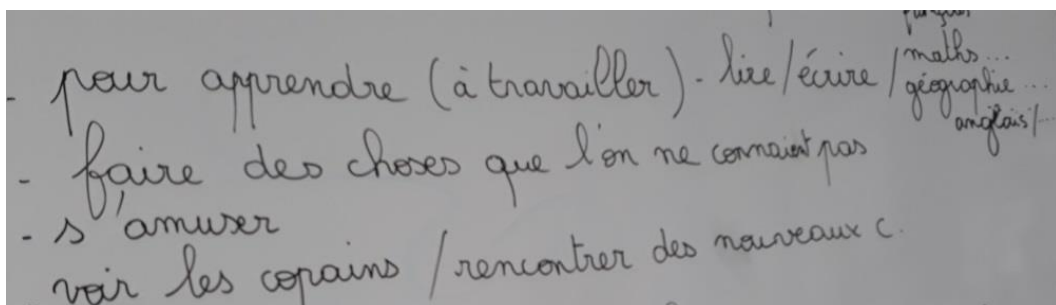 - pour apprendre (à travailler) - lire/écrire/
maths...
géographie...
anglais/...
- faire des choses que l'on ne connaient pas
- s'amuser
voir les copains / rencontrer des nouveaux c.